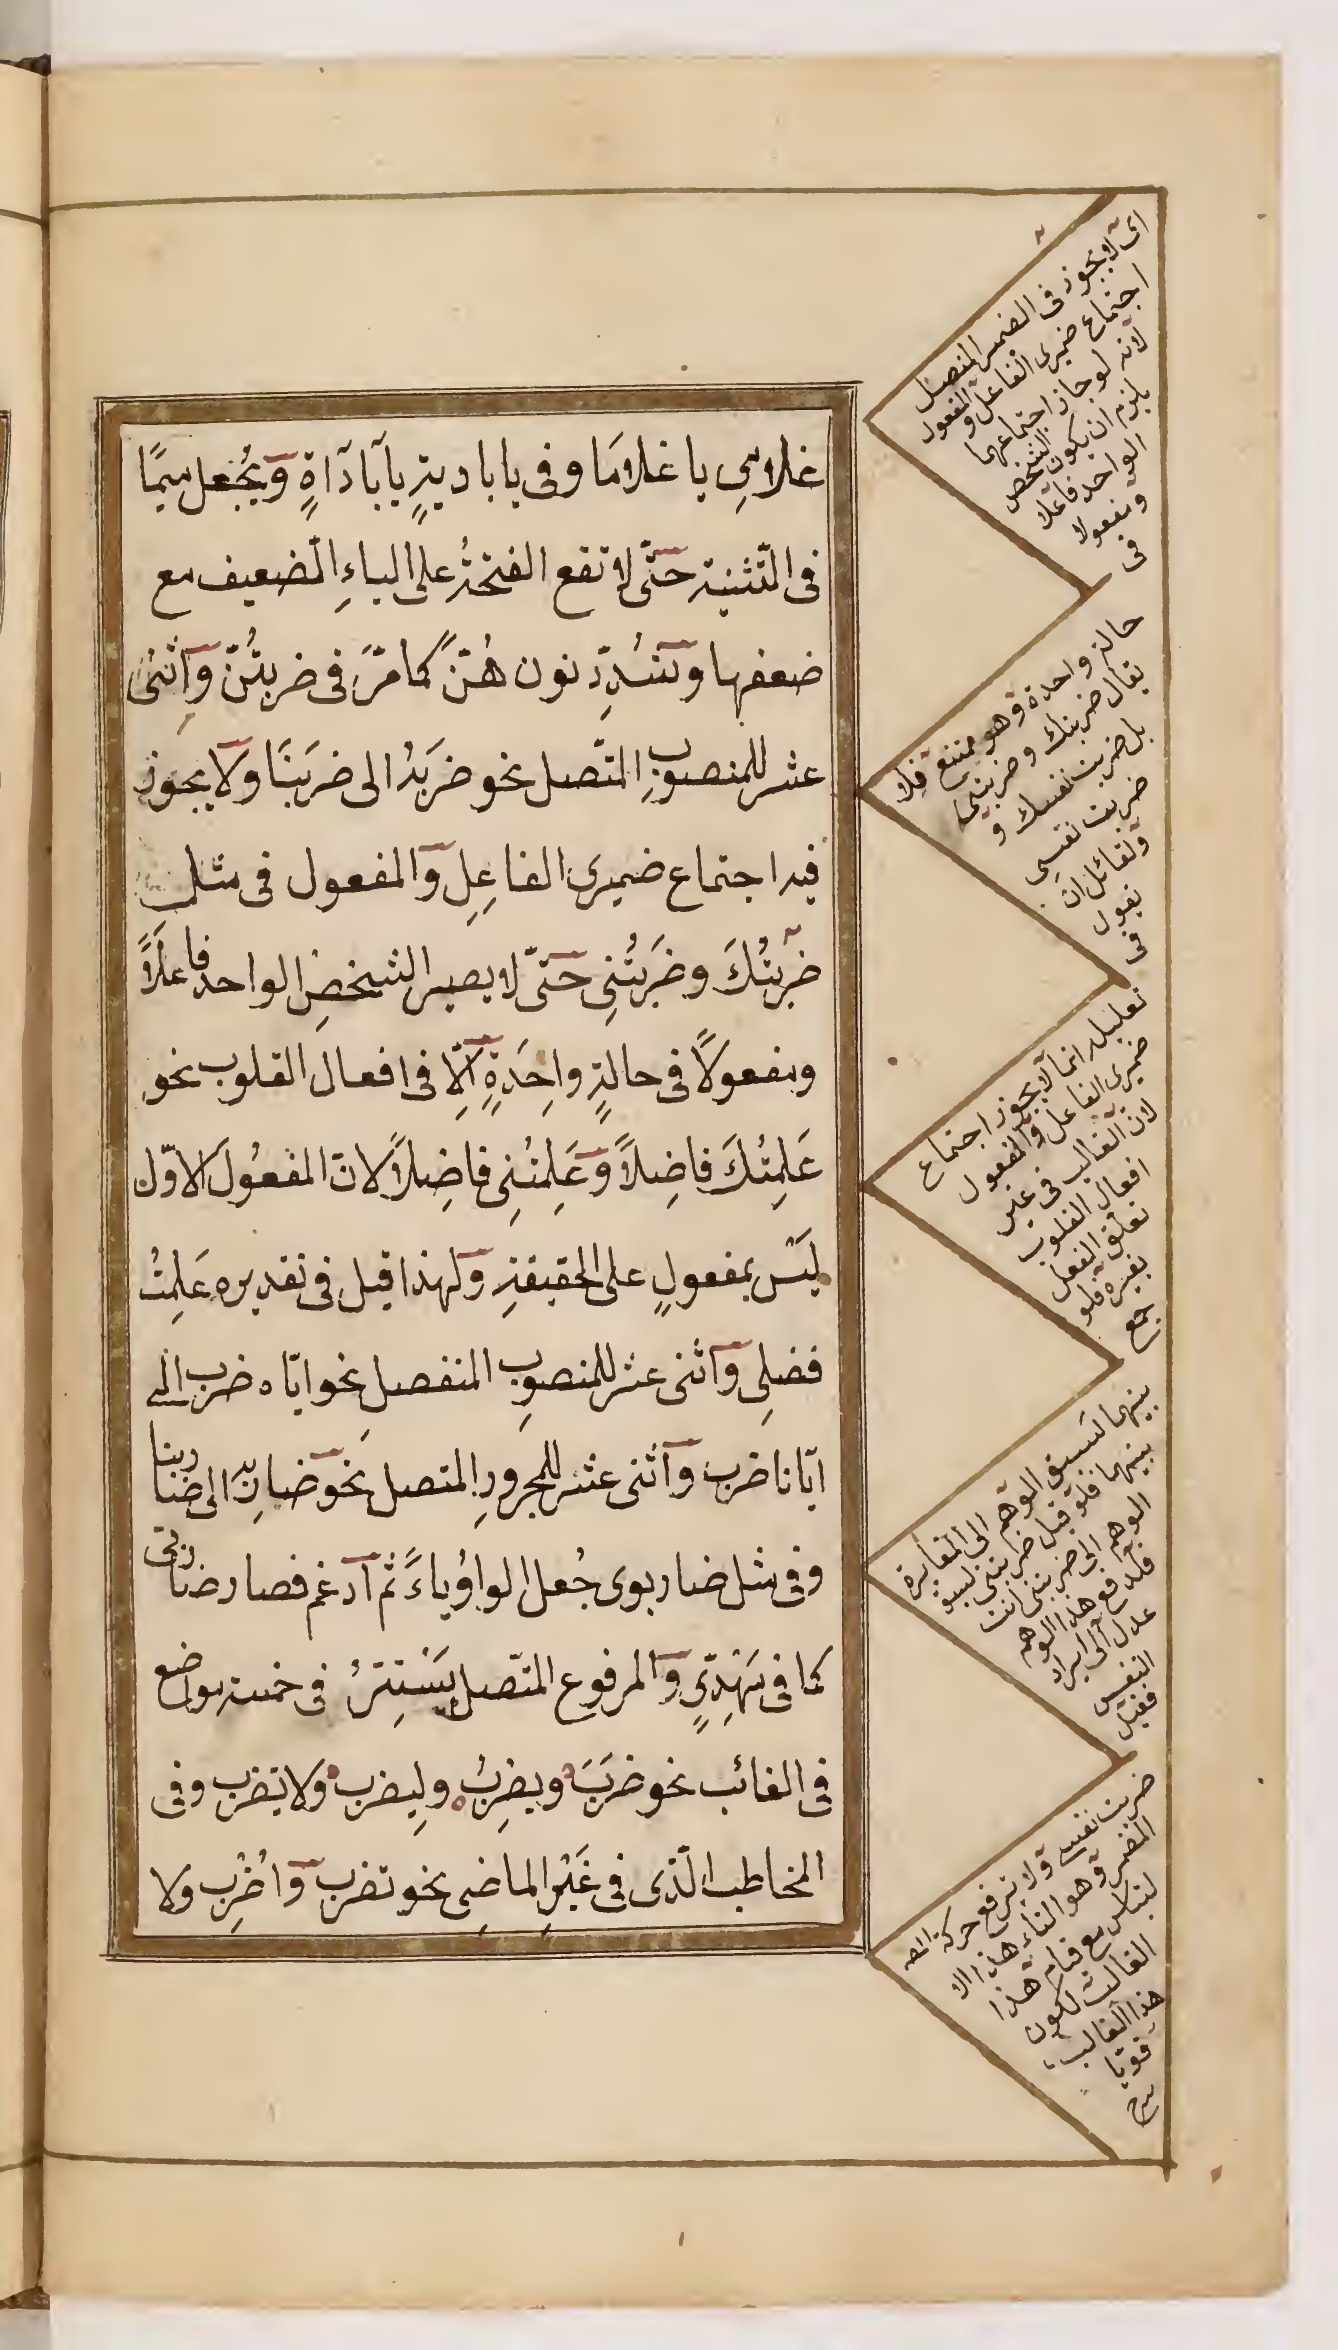 غلامىِ يا غلامَا وفى يا باديةٍ يا باداةٍ ويُجعل ميمًا
فى التّثنية حتّى لا تقع الفتحةُ على الياءِ الضعيف مع
ضعفها وتُشدِّد نون هُنَّ كما مَرَّ فى ضربتُنَّ واثنَى
عشر للمنصوبِ المتّصل نحو ضرَبَهُ الى ضرَبَنَا ولا يجوز
فيه اجتماع ضميرى الفاعِلِ والمفعول فى مثل
ضرَبتُكَ وضرَبتُنِى حتّى لا يصير الشخصِ الواحد فاعلًا
ومفعولًا فى حالةٍ واحِدَةٍ اِلّا فى افعال القلوب نحو
عَلِمتُكَ فاضِلًا وعَلِمتُنِى فاضِلًا لانّ المفعُولَ الاوّل
ليَسَ بمفعولٍ على الحقيقةِ ولهذا قيل فى تقديره عَلِمتُ
فضلِى واثنى عشر للمنصوبِ المنفصل نحو ايّاه ضرب الى
ايّانا ضرب واثنى عشر للمجرورِ المتصل نحو ضاربِهِ الى ضاربنا
وفى مثل ضاربوى جُعل الواوُ ياءً ثم ادغم فصار ضاربىّ
كما فى مَهْدِىٍّ والمرفوع المتّصل يَسْتِترُ فى خمسة مواضع
فى الغائب نحو ضرَبَ ويضرِبُ وليضرب ولا يضرب وفى
المخاطب الّذى فى غَيْرِ الماضِى نحو تضرب واضْرِب ولا
اى لا يجوز فى الضمير المتصل
اجتماع ضميرى الفاعل والمفعول
لانه لو جاز اجتماعهما
يلزم ان يكون الشخص
الواحد فاعلا
ومفعولا
فى
حالة واحدة وهو ممتنع فلا
يقال ضربتك وضربتنى
بل ضربت نفسك و
ضربت نفسى
ولقائل ان
يقول
فى
تعليله انما لا يجوز اجتماع
ضميرى الفاعل والمفعول
لان الغالب فى غير
افعال القلوب
تعلق الفعل
بغيره فلو
جمع
بينهما لسبق الوهم الى المغايرة
بينهما فلو قيل ضربتنى لسبق
الوهم الى ضربتنى انت
فلدفع هذا الوهم
عدل الى ايراد
النفس
فقيل
ضربت نفسى ولا يرفع حركة
المضمر وهو التاء هذا الا
لتباس مع قيام هذا
الغالب لكون
هذا الغالب
قويا
شرح